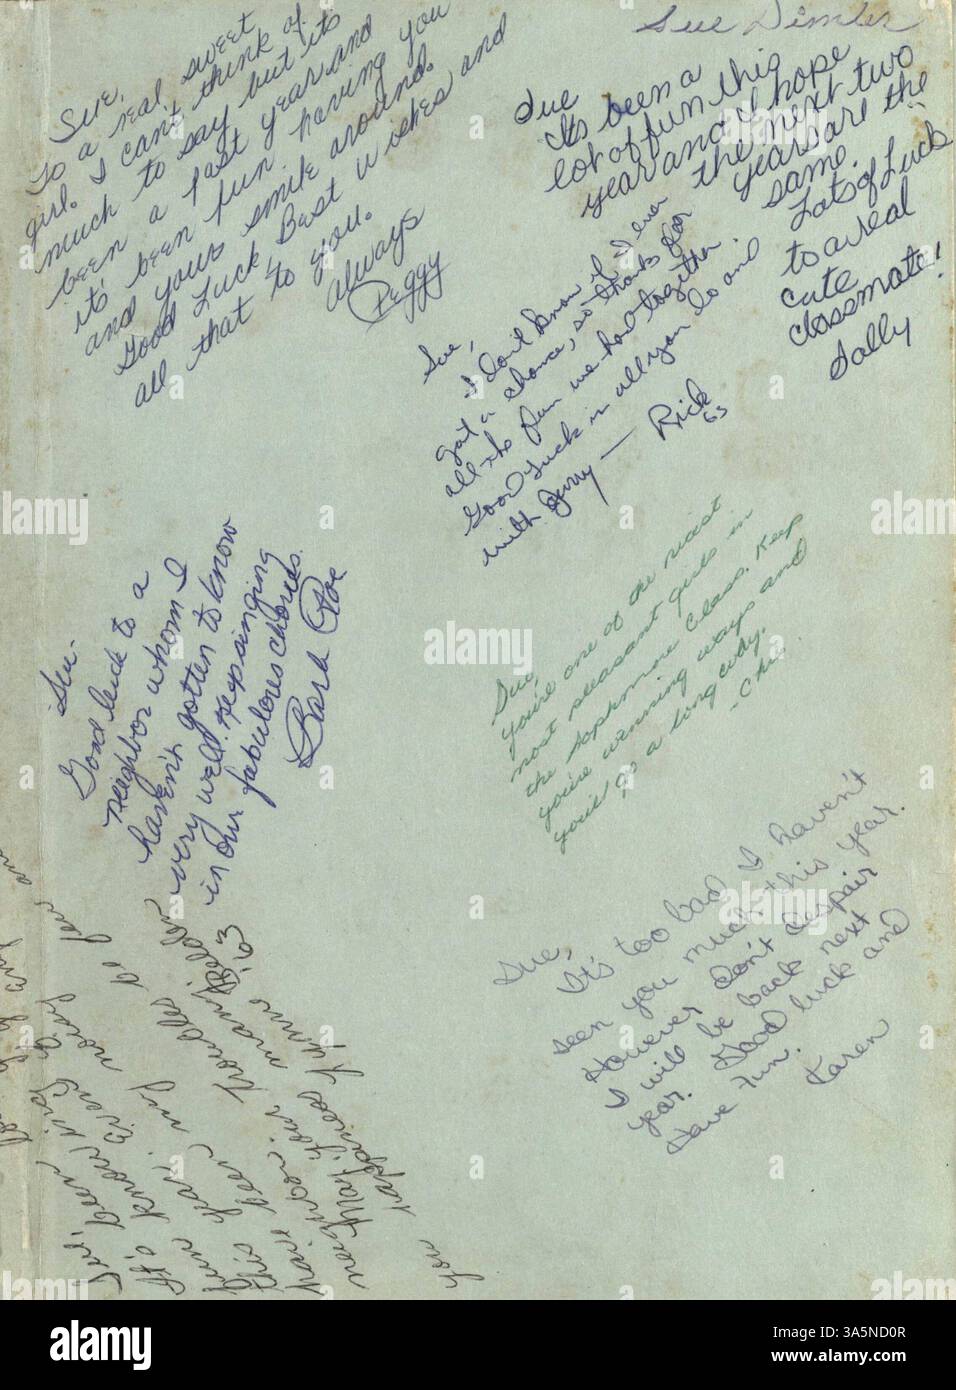 Sue Dimler
Sue,
To a real sweet
girl. I can't think of
much to say but its
been a fast year and
it's been fun having you
and your smile around.
Good Luck, Best wishes and
all that to you.
Always
Peggy
Sue
Its been a
lot of fun this
year and I hope
the next two
years are the
same.
Lots of Luck
to a real
cute
classmate!
Sally
Sue,
I don't know if I ever
got a chance, so thanks for
all the fun we had together.
Good luck in all you do and
with Jerry — Rick
63
Sue,
You're one of the nicest
most pleasant girls in
the sophmore class. Keep
you're winning ways and
you'll go a long way.
- Chi
Sue-
Good luck to a
neighbor whom I
haven't gotten to know
very well. Keep singing
in our fabulous chorus.
Barb Roe
Sue,
It's too bad I haven't
seen you much this year.
However don't despair
I will be back next
year. Good luck and
have fun.
Karen
Sue,
It's been
fun knowing
this year. Every
have been my
neighbor
May your troubles be few and
your happiness many
Lynne
'63
a
alamy
alamy
Image ID: 3A5ND0R
www.alamy.com